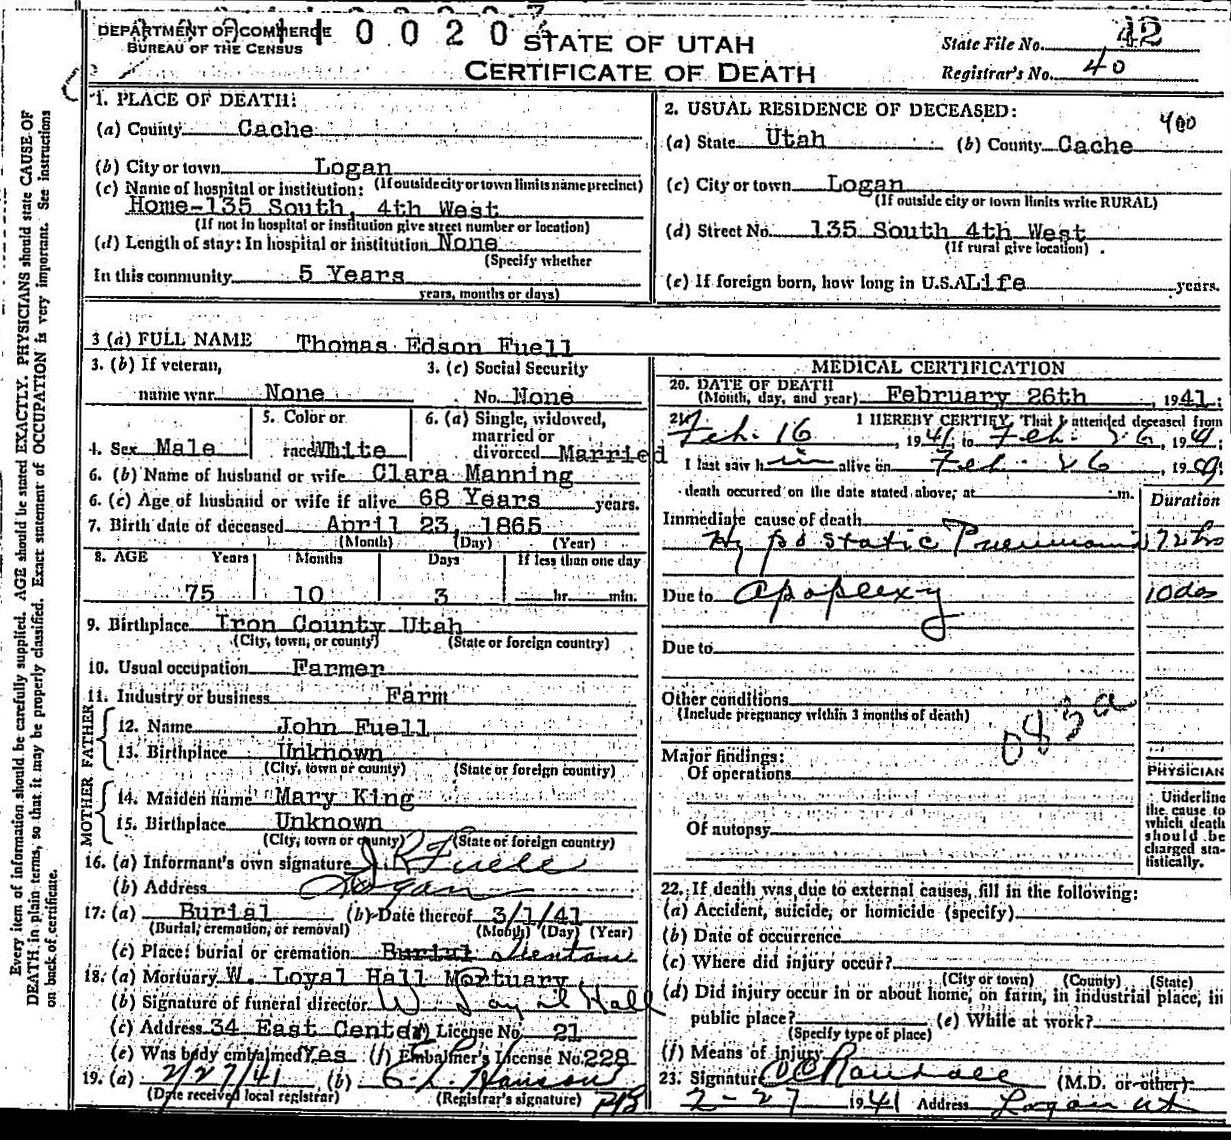 DEPARTMENT OF COMMERCE
BUREAU OF THE CENSUS
0 0 2 0
STATE OF UTAH
CERTIFICATE OF DEATH
State File No. 42
Registrar's No. 40
Every item of information should be carefully supplied. AGE should be stated EXACTLY. PHYSICIANS should state CAUSE OF
DEATH in plain terms, so that it may be properly classified. Exact statement of OCCUPATION is very important. See instructions
on back of certificate.
1. PLACE OF DEATH:
(a) County Cache
(b) City or town Logan
(If outside city or town limits name precinct)
(c) Name of hospital or institution:
Home-135 South, 4th West
(If not in hospital or institution give street number or location)
(d) Length of stay: In hospital or institution None
(Specify whether
In this community 5 Years
years, months or days)
2. USUAL RESIDENCE OF DECEASED:
400
(a) State Utah (b) County Cache
(c) City or town Logan
(If outside city or town limits write RURAL)
(d) Street No. 135 South 4th West
(If rural give location)
(e) If foreign born, how long in U.S.A Life years.
3 (a) FULL NAME Thomas Edson Fuell
3. (b) If veteran,
name war None
3. (c) Social Security
No. None
4. Sex Male
5. Color or
race White
6. (a) Single, widowed,
married or
divorced Married
6. (b) Name of husband or wife Clara Manning
6. (c) Age of husband or wife if alive 68 Years years.
7. Birth date of deceased April 23, 1865
(Month) (Day) (Year)
8. AGE Years Months Days If less than one day
75 10 3 hr. min.
9. Birthplace Iron County Utah
(City, town, or county) (State or foreign country)
10. Usual occupation Farmer
11. Industry or business Farm
FATHER
12. Name John Fuell
13. Birthplace Unknown
(City, town or county) (State or foreign country)
MOTHER
14. Maiden name Mary King
15. Birthplace Unknown
(City, town or county) (State or foreign country)
16. (a) Informant's own signature J. R. Fuell
(b) Address Logan
17. (a) Burial (b) Date thereof 3/1/41
(Burial, cremation, or removal) (Month) (Day) (Year)
(c) Place: burial or cremation Burial
18. (a) Mortuary W. Loyal Hall Mortuary
(b) Signature of funeral director W. Loyal Hall
(c) Address 34 East Center (d) License No. 21
(e) Was body embalmed Yes (f) Embalmer's License No. 228
19. (a) 2/27/41 (b)
(Date received local registrar) (Registrar's signature)
MEDICAL CERTIFICATION
20. DATE OF DEATH
(Month, day, and year) February 26th, 1941.
21. I HEREBY CERTIFY, That I attended deceased from
Feb. 16, 1941 to Feb. 26, 1941
I last saw him alive on Feb. 26, 19
death occurred on the date stated above, at m.
Duration
Immediate cause of death
Hypostatic Pneumonia 72 hrs
Due to Apoplexy 10 das
Due to
Other conditions
(Include pregnancy within 3 months of death)
083a
Major findings:
Of operations
Of autopsy
PHYSICIAN
Underline
the cause to
which death
should be
charged sta-
tistically.
22. If death was due to external causes, fill in the following:
(a) Accident, suicide, or homicide (specify)
(b) Date of occurrence
(c) Where did injury occur?
(City or town) (County) (State)
(d) Did injury occur in or about home, on farm, in industrial place, in
public place? (e) While at work?
(Specify type of place)
(f) Means of injury
23. Signature (M.D. or other)
2-27 1941 Address Logan Ut